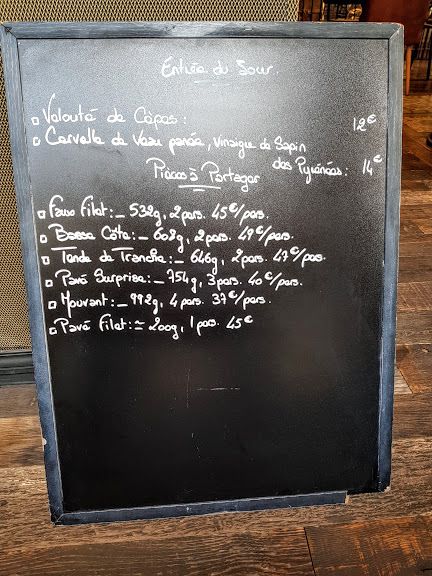 Entrée du Jour.
Velouté de Cèpes : 12€
Cervelle de Veau panée, vinaigre de Sapin
des Pyrénées : 14€
Pièces à Partager
Faux Filet :_ 532g, 2 pers. 45€/pers.
Basse Côte :_ 608g, 2 pers. 49€/pers.
Tende de Tranche :_ 646g, 2 pers. 47€/pers.
Pavé Surprise :_ 754g, 3 pers. 40€/pers.
Mouvant :_ 992g, 4 pers. 37€/pers.
Pavé Filet : ≃ 200g, 1 pers. 45€